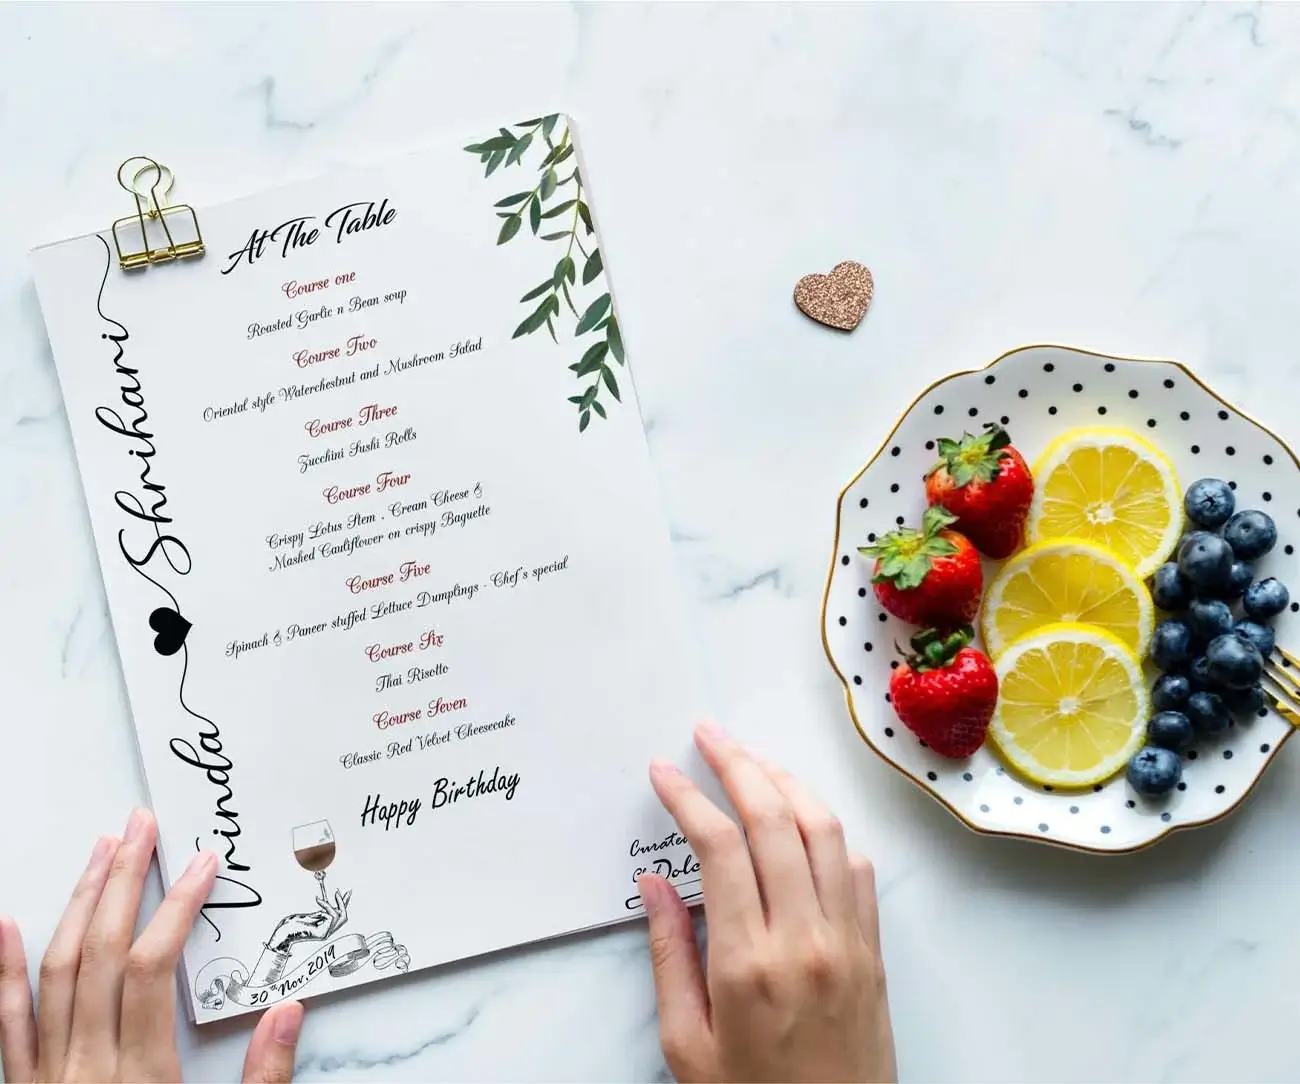 At The Table
Course one
Roasted Garlic n Bean soup
Course Two
Oriental style Waterchestnut and Mushroom Salad
Course Three
Zucchini Sushi Rolls
Course Four
Crispy Lotus Stem , Cream Cheese &
Mashed Cauliflower on crispy Baguette
Course Five
Spinach & Paneer stuffed Lettuce Dumplings - Chef's special
Course Six
Thai Risotto
Course Seven
Classic Red Velvet Cheesecake
Happy Birthday
Vrinda Shrihari
30th Nov, 2019